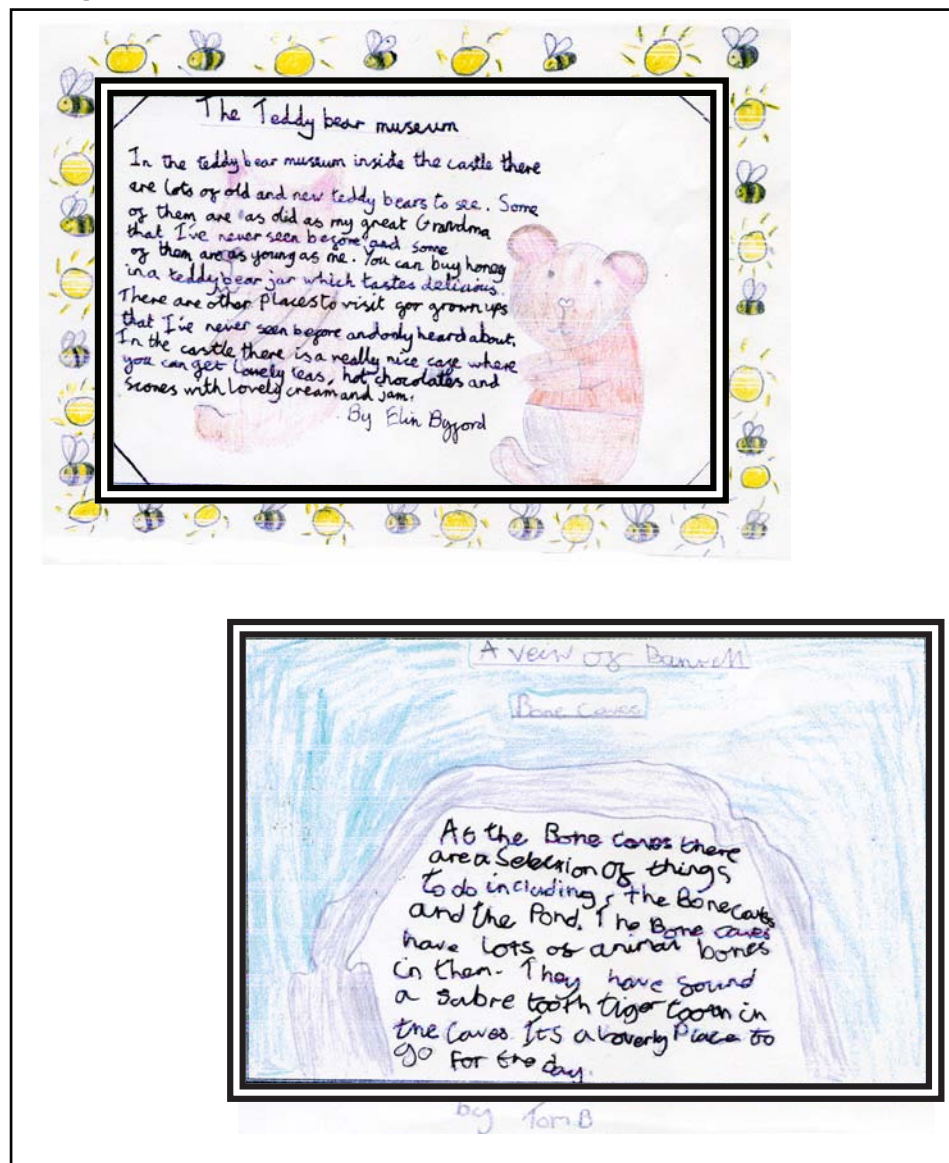 The Teddy bear museum
In the teddy bear museum inside the castle there
are lots of old and new teddy bears to see. Some
of them are as old as my great Grandma
that I've never seen before and some
of them are as young as me. You can buy honey
in a teddy bear jar which tastes delicious.
There are other Places to visit for grown ups
that I've never seen before and only heard about.
In the castle there is a really nice cafe where
you can get lovely teas, hot chocolates and
scones with lovely cream and jam.
By Elin Byford
A veiw of Banwell
Bone Caves
At the Bone caves there
are a Selection Of things
to do including, the Bone caves
and the Pond. The Bone caves
have lots of animal bones
in them. They have found
a sabre tooth tiger tooth in
the caves. It's a loverly Place to
go for the day.
by Tom B